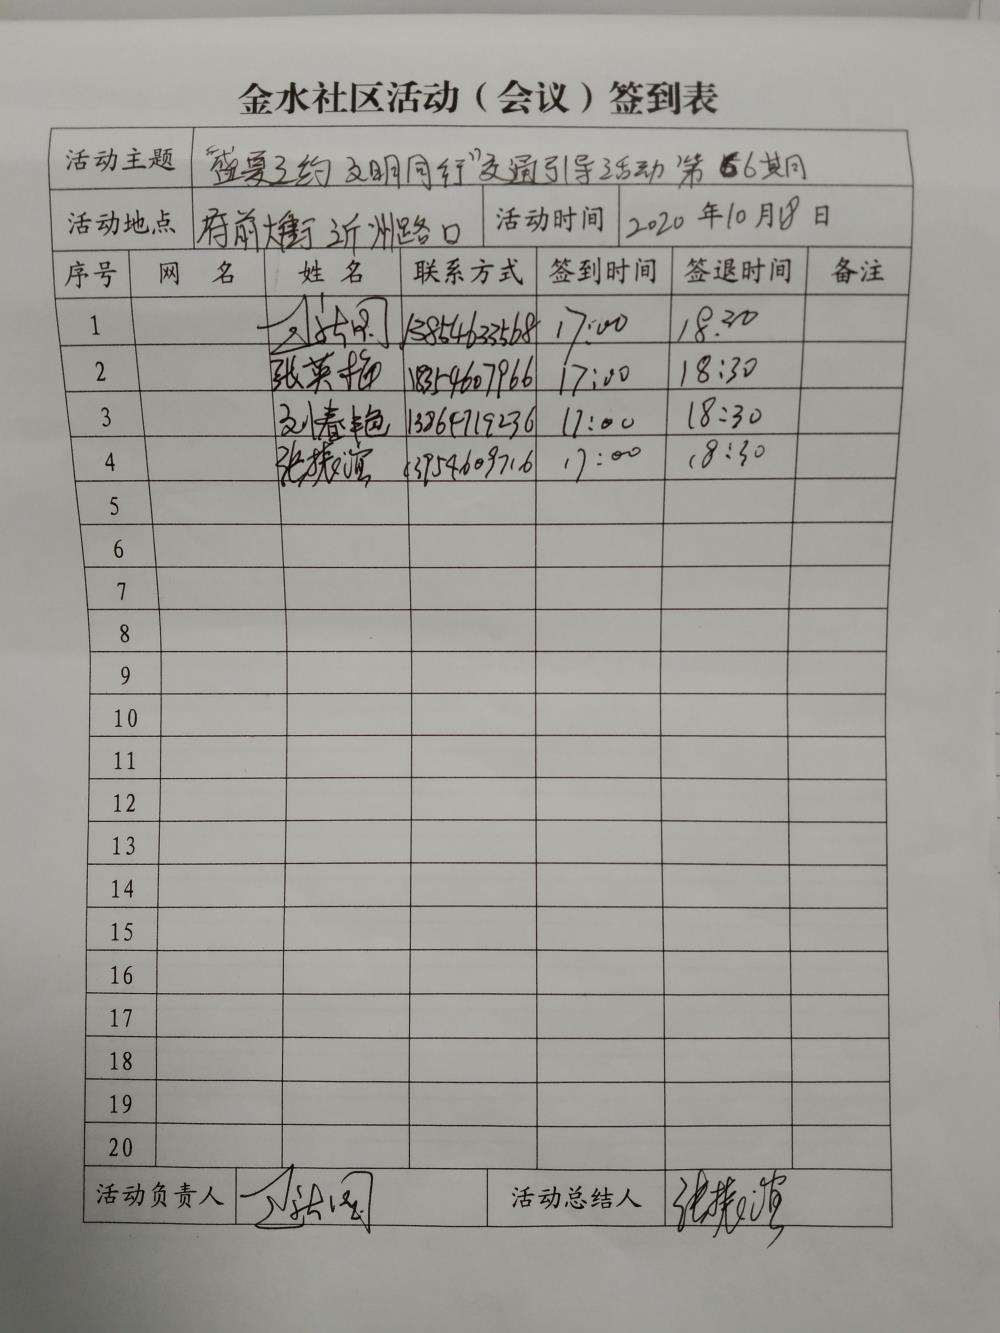 金水社区活动（会议）签到表
活动主题 “盛夏之约 文明同行”交通引导活动 第6期
活动地点 府前大街 沂州路口 活动时间 2020年10月18日
序号 网 名 姓 名 联系方式 签到时间 签退时间 备注
1 13854633568 17:00 18:30
2 张英梅 18354607966 17:00 18:30
3 刘春艳 13864719236 17:00 18:30
4 张振谊 13954609716 17:00 18:30
5
6
7
8
9
10
11
12
13
14
15
16
17
18
19
20
活动负责人 活动总结人 张振谊